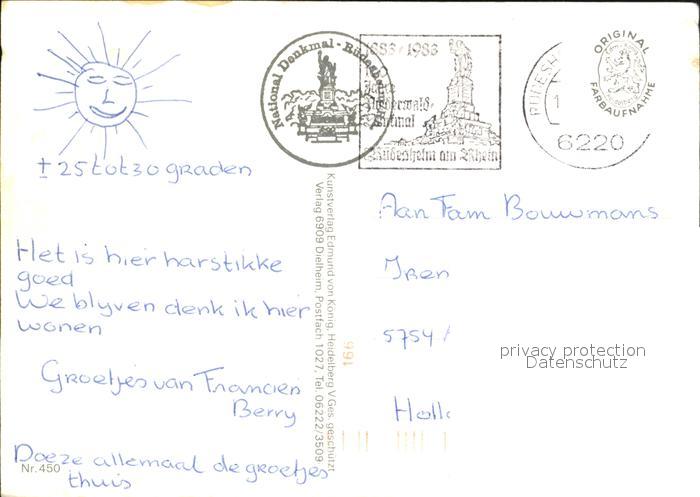 ± 25 tot 30 graden
Het is hier harstikke
goed
We blyven denk ik hier
wonen
Groetjes van Francien
Berry
Doeze allemaal de groetjes
thuis
Nr. 450
National Denkmal - Rüdesheim
1883 / 1983
Jahre
Niederwald-
Denkmal
Rüdesheim am Rhein
RÜDESH
1
6220
ORIGINAL
FARBAUFNAHME
Kunstverlag Edmund von König, Heidelberg V.Ges. geschützt
Verlag 6909 Dielheim, Postfach 1027, Tel. 06222/3509
166
Aan Fam Bouwmans
Iren
5754
Holl
privacy protection
Datenschutz